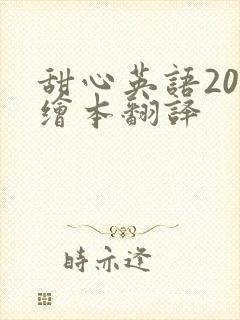 甜心英語20
繪本翻譯
時亦逢